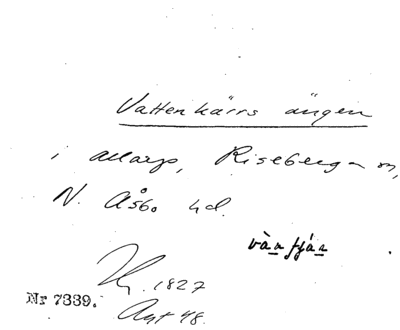 Vattenkärrs ängen
i Allarp, Riseberga sn,
N. Åsbo hd.
vàn fján
1827
Nr 7339.
Akt 48.